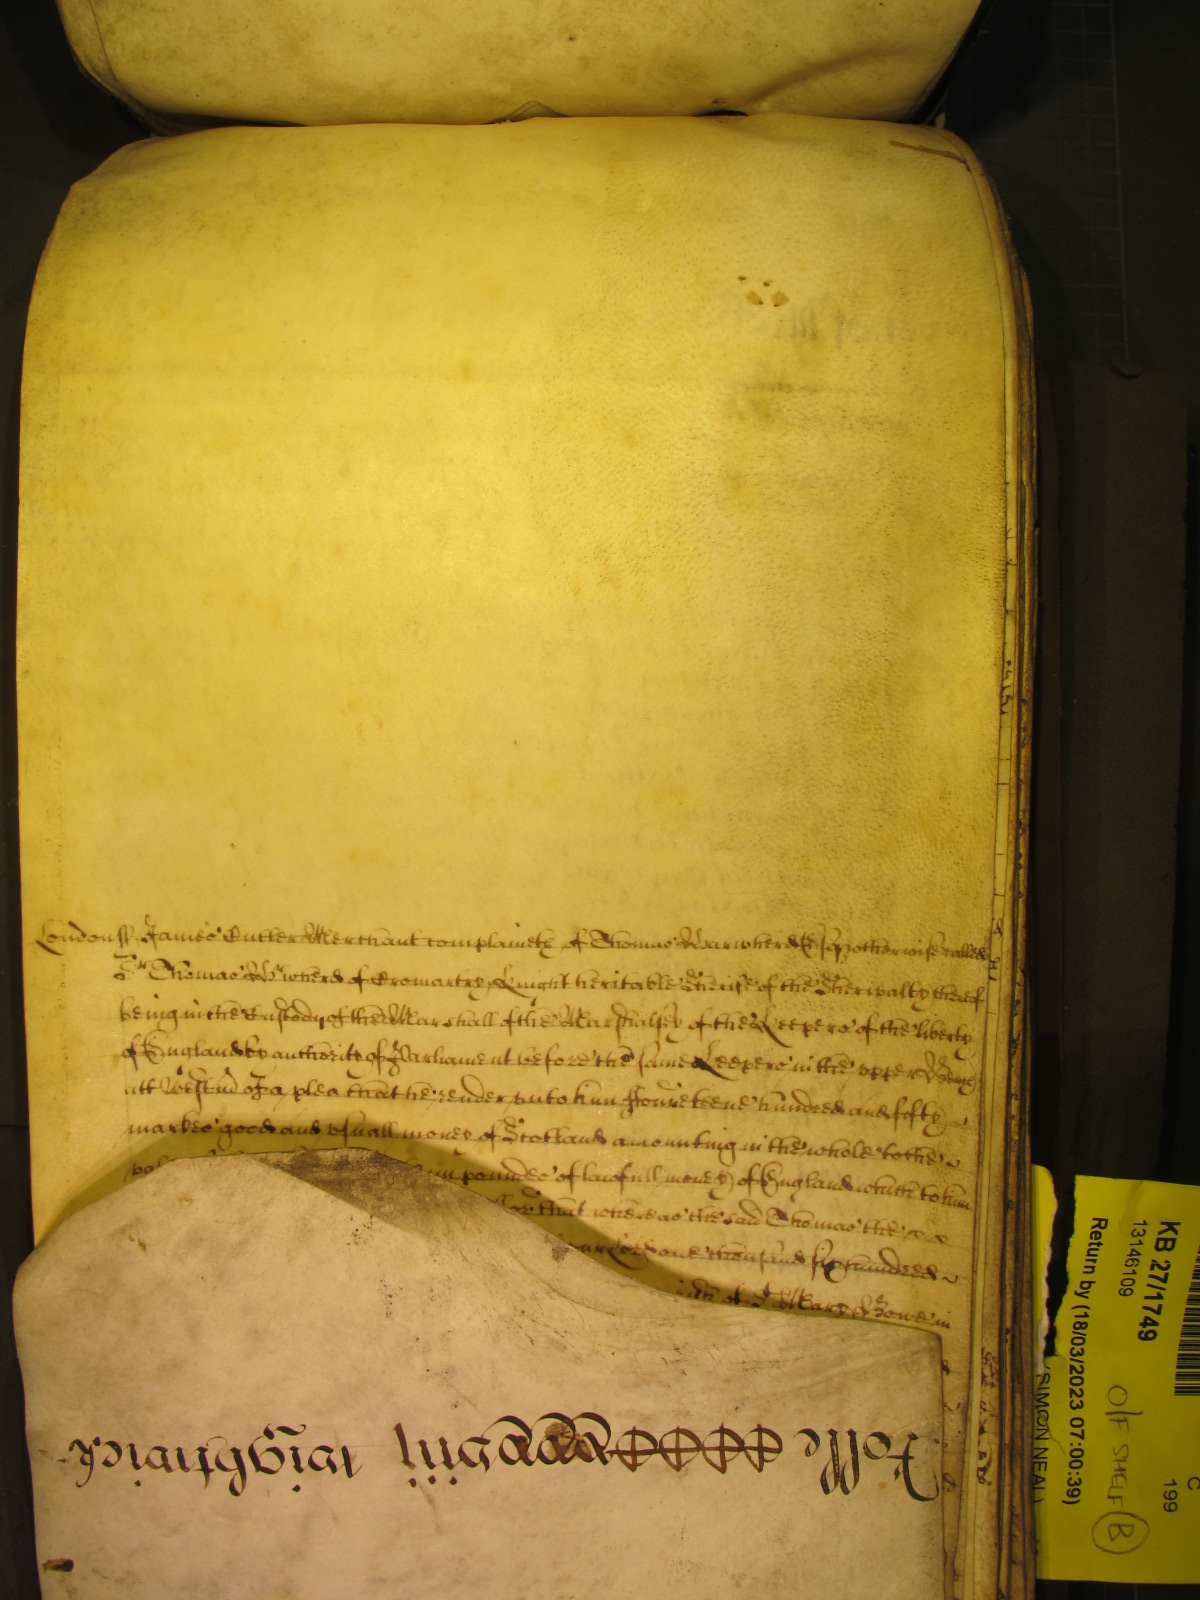 Londonss James Cutler Merchant complaineth of Thomas Urwherd Esqr otherwise called
Sr Thomas Urwherd of Cromartey Knight heritable Sherife of the Sherivalty thereof
being in the Custody of the Marshall of the Marshalsey of the Keepers of the liberty
of England by authority of Parliament before the same Keepers in the upper Bench
att Westm of a plea that he render unto him fourteene hundred and fifty
markes good and usuall money of Scotland amounting in the whole to the
poundes of lawfull money of England which to him
that whereas the said Thomas the
one thousand six hundred
of St Mary Bowe in
Wightwick
KB 27/1749
13146109
Return by (18/03/2023 07:00:39)
(SIMON NEAL)
O/F SHELF B
C
199